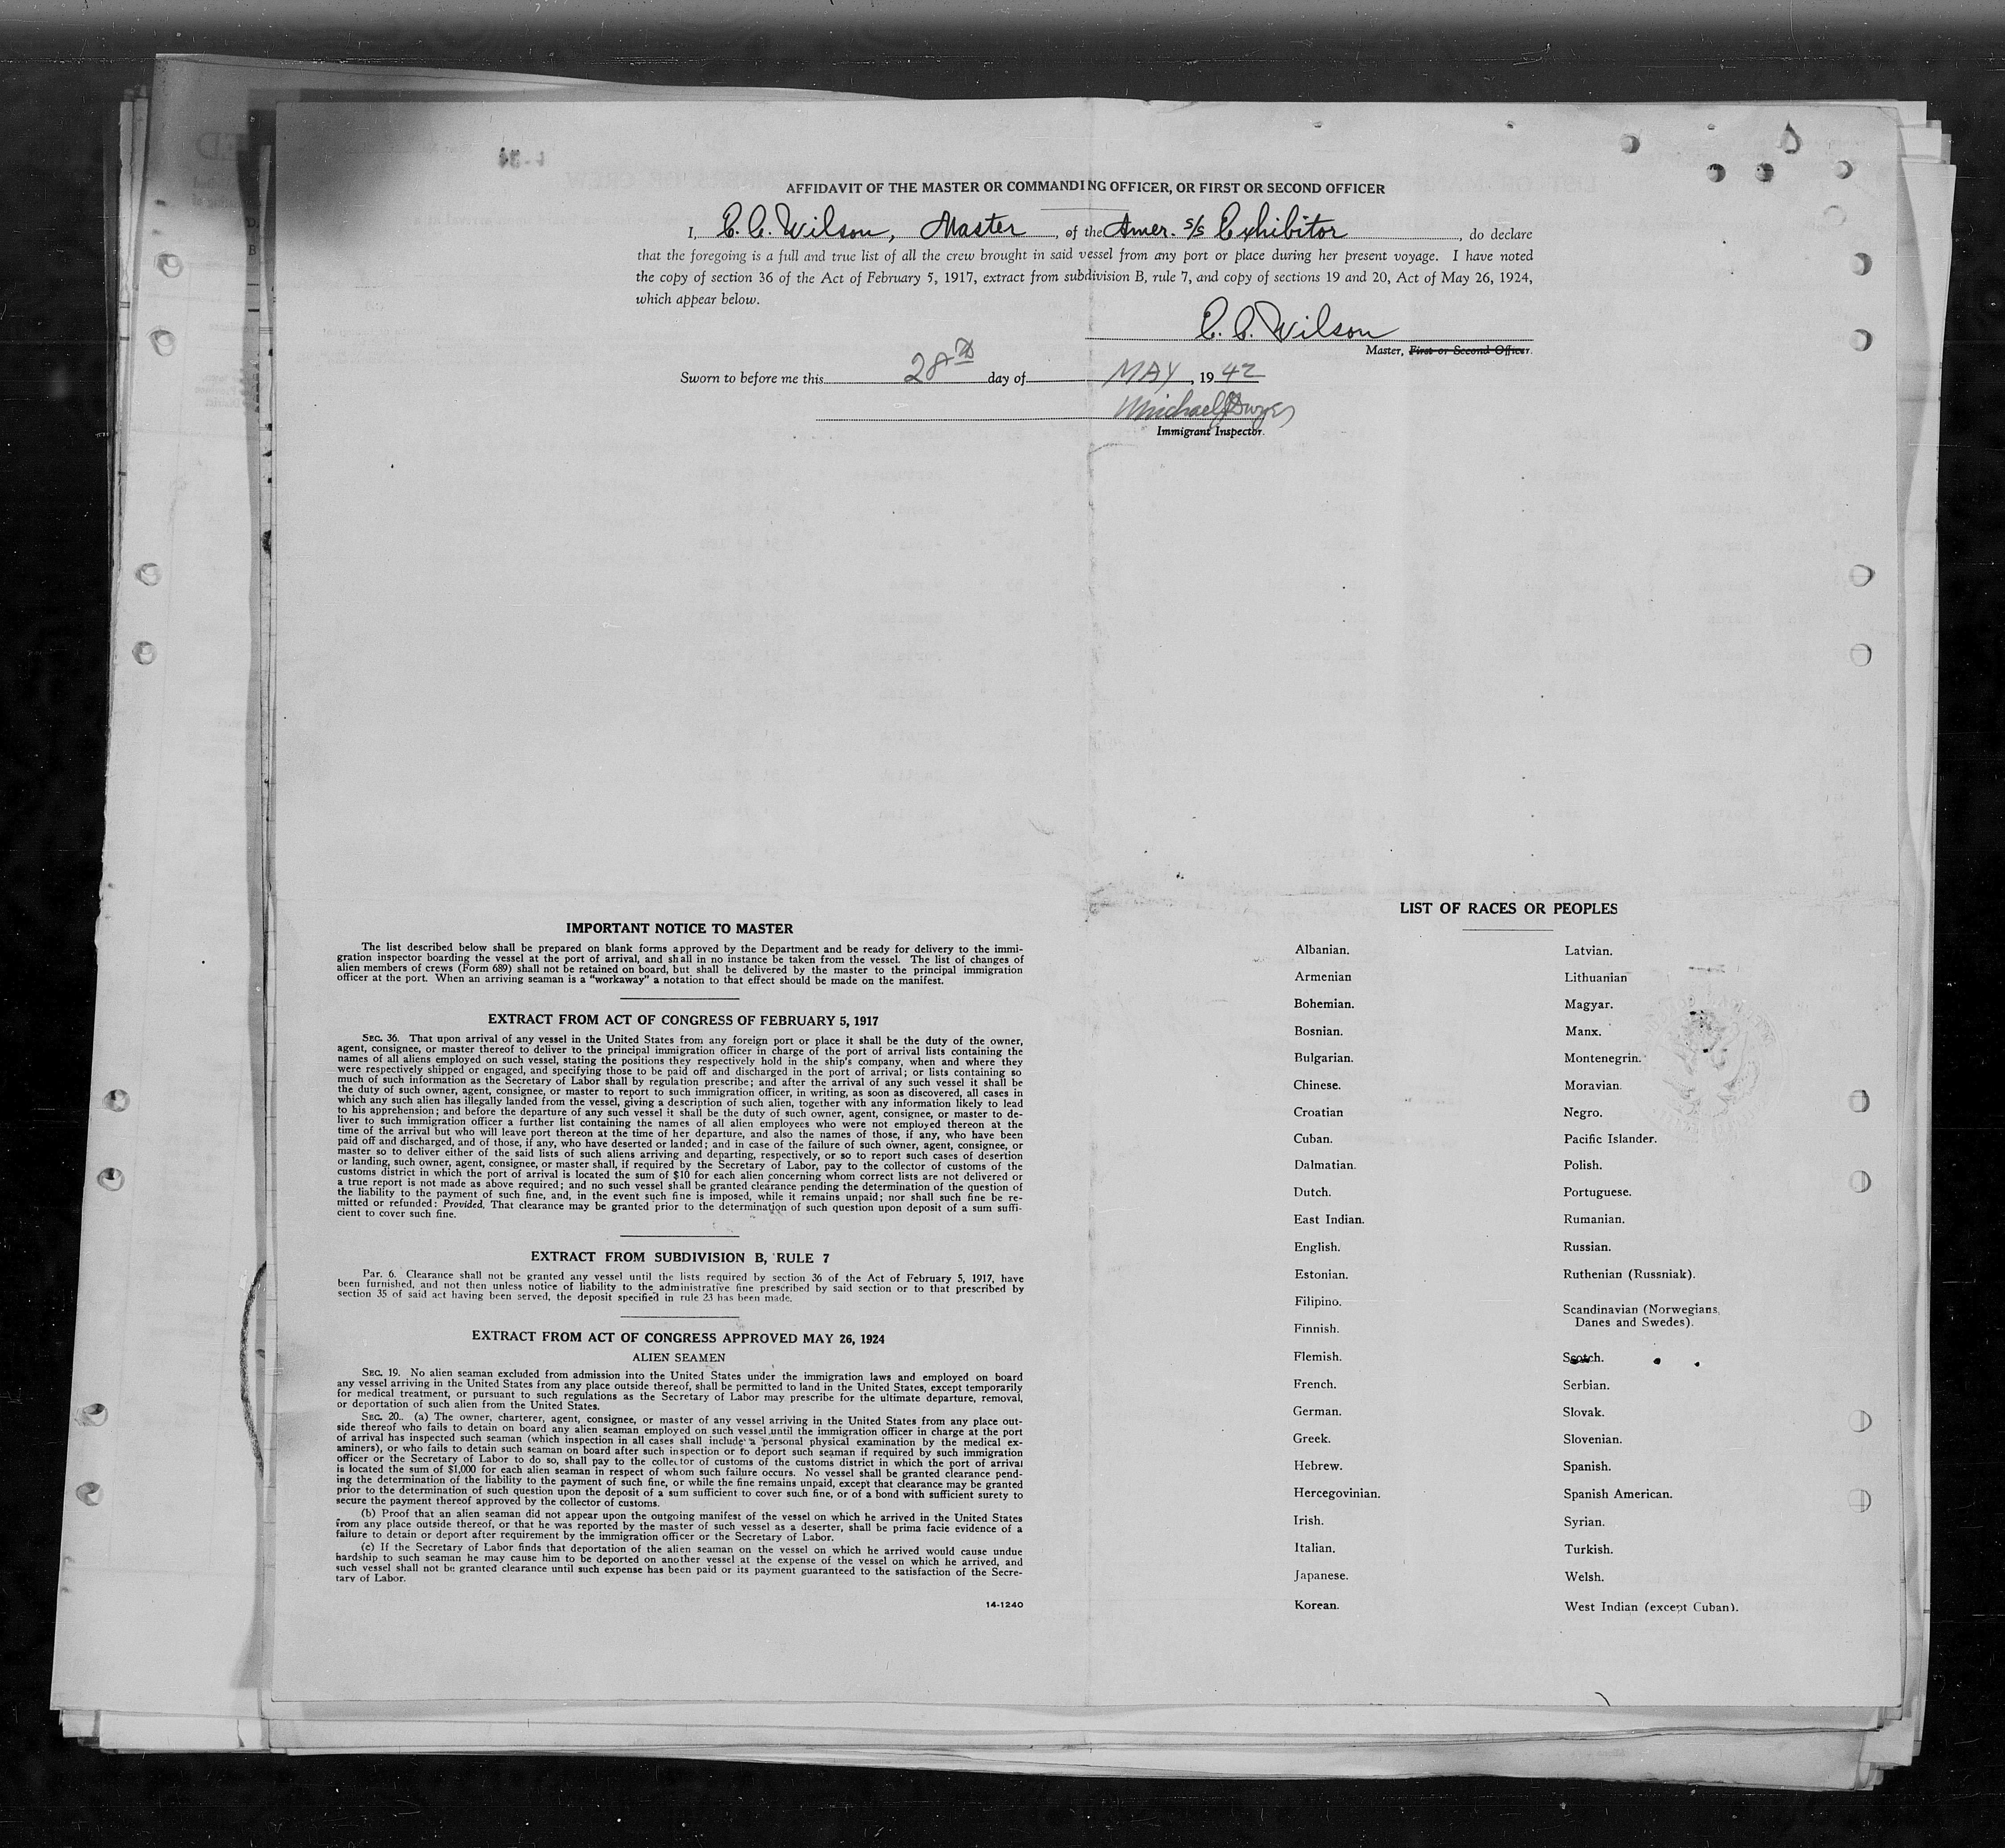 AFFIDAVIT OF THE MASTER OR COMMANDING OFFICER, OR FIRST OR SECOND OFFICER
I, E. C. Wilson, Master, of the Amer. S/S Exhibitor, do declare
that the foregoing is a full and true list of all the crew brought in said vessel from any port or place during her present voyage. I have noted
the copy of section 36 of the Act of February 5, 1917, extract from subdivision B, rule 7, and copy of sections 19 and 20, Act of May 26, 1924,
which appear below.
E. C. Wilson
Master, First or Second Officer.
Sworn to before me this 28th day of MAY, 1942
Michael
Immigrant Inspector.
IMPORTANT NOTICE TO MASTER
The list described below shall be prepared on blank forms approved by the Department and be ready for delivery to the immi-
gration inspector boarding the vessel at the port of arrival, and shall in no instance be taken from the vessel. The list of changes of
alien members of crews (Form 689) shall not be retained on board, but shall be delivered by the master to the principal immigration
officer at the port. When an arriving seaman is a "workaway" a notation to that effect should be made on the manifest.
EXTRACT FROM ACT OF CONGRESS OF FEBRUARY 5, 1917
SEC. 36. That upon arrival of any vessel in the United States from any foreign port or place it shall be the duty of the owner,
agent, consignee, or master thereof to deliver to the principal immigration officer in charge of the port of arrival lists containing the
names of all aliens employed on such vessel, stating the positions they respectively hold in the ship's company, when and where they
were respectively shipped or engaged, and specifying those to be paid off and discharged in the port of arrival; or lists containing so
much of such information as the Secretary of Labor shall by regulation prescribe; and after the arrival of any such vessel it shall be
the duty of such owner, agent, consignee, or master to report to such immigration officer, in writing, as soon as discovered, all cases in
which any such alien has illegally landed from the vessel, giving a description of such alien, together with any information likely to lead
to his apprehension; and before the departure of any such vessel it shall be the duty of such owner, agent, consignee, or master to de-
liver to such immigration officer a further list containing the names of all alien employees who were not employed thereon at the
time of the arrival but who will leave port thereon at the time of her departure, and also the names of those, if any, who have been
paid off and discharged, and of those, if any, who have deserted or landed; and in case of the failure of such owner, agent, consignee, or
master so to deliver either of the said lists of such aliens arriving and departing, respectively, or so to report such cases of desertion
or landing, such owner, agent, consignee, or master shall, if required by the Secretary of Labor, pay to the collector of customs of the
customs district in which the port of arrival is located the sum of $10 for each alien concerning whom correct lists are not delivered or
a true report is not made as above required; and no such vessel shall be granted clearance pending the determination of the question of
the liability to the payment of such fine, and, in the event such fine is imposed, while it remains unpaid; nor shall such fine be re-
mitted or refunded: Provided, That clearance may be granted prior to the determination of such question upon deposit of a sum suffi-
cient to cover such fine.
EXTRACT FROM SUBDIVISION B, RULE 7
Par. 6. Clearance shall not be granted any vessel until the lists required by section 36 of the Act of February 5, 1917, have
been furnished, and not then unless notice of liability to the administrative fine prescribed by said section or to that prescribed by
section 35 of said act having been served, the deposit specified in rule 23 has been made.
EXTRACT FROM ACT OF CONGRESS APPROVED MAY 26, 1924
ALIEN SEAMEN
SEC. 19. No alien seaman excluded from admission into the United States under the immigration laws and employed on board
any vessel arriving in the United States from any place outside thereof, shall be permitted to land in the United States, except temporarily
for medical treatment, or pursuant to such regulations as the Secretary of Labor may prescribe for the ultimate departure, removal,
or deportation of such alien from the United States.
SEC. 20. (a) The owner, charterer, agent, consignee, or master of any vessel arriving in the United States from any place out-
side thereof who fails to detain on board any alien seaman employed on such vessel until the immigration officer in charge at the port
of arrival has inspected such seaman (which inspection in all cases shall include a personal physical examination by the medical ex-
aminers), or who fails to detain such seaman on board after such inspection or to deport such seaman if required by such immigration
officer or the Secretary of Labor to do so, shall pay to the collector of customs of the customs district in which the port of arrival
is located the sum of $1,000 for each alien seaman in respect of whom such failure occurs. No vessel shall be granted clearance pend-
ing the determination of the liability to the payment of such fine, or while the fine remains unpaid, except that clearance may be granted
prior to the determination of such question upon the deposit of a sum sufficient to cover such fine, or of a bond with sufficient surety to
secure the payment thereof approved by the collector of customs.
(b) Proof that an alien seaman did not appear upon the outgoing manifest of the vessel on which he arrived in the United States
from any place outside thereof, or that he was reported by the master of such vessel as a deserter, shall be prima facie evidence of a
failure to detain or deport after requirement by the immigration officer or the Secretary of Labor.
(c) If the Secretary of Labor finds that deportation of the alien seaman on the vessel on which he arrived would cause undue
hardship to such seaman he may cause him to be deported on another vessel at the expense of the vessel on which he arrived, and
such vessel shall not be granted clearance until such expense has been paid or its payment guaranteed to the satisfaction of the Secre-
tary of Labor.
14-1240
LIST OF RACES OR PEOPLES
Albanian.
Armenian
Bohemian.
Bosnian.
Bulgarian.
Chinese.
Croatian
Cuban.
Dalmatian.
Dutch.
East Indian.
English.
Estonian.
Filipino.
Finnish.
Flemish.
French.
German.
Greek.
Hebrew.
Hercegovinian.
Irish.
Italian.
Japanese.
Korean.
Latvian.
Lithuanian
Magyar.
Manx.
Montenegrin.
Moravian.
Negro.
Pacific Islander.
Polish.
Portuguese.
Rumanian.
Russian.
Ruthenian (Russniak).
Scandinavian (Norwegians,
Danes and Swedes).
Scotch.
Serbian.
Slovak.
Slovenian.
Spanish.
Spanish American.
Syrian.
Turkish.
Welsh.
West Indian (except Cuban).